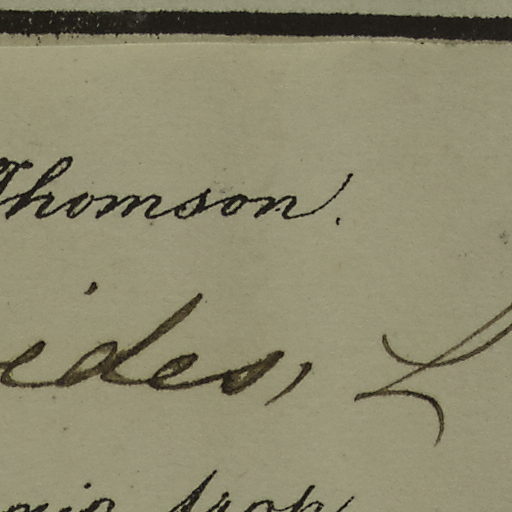 Thomson.
ides, L